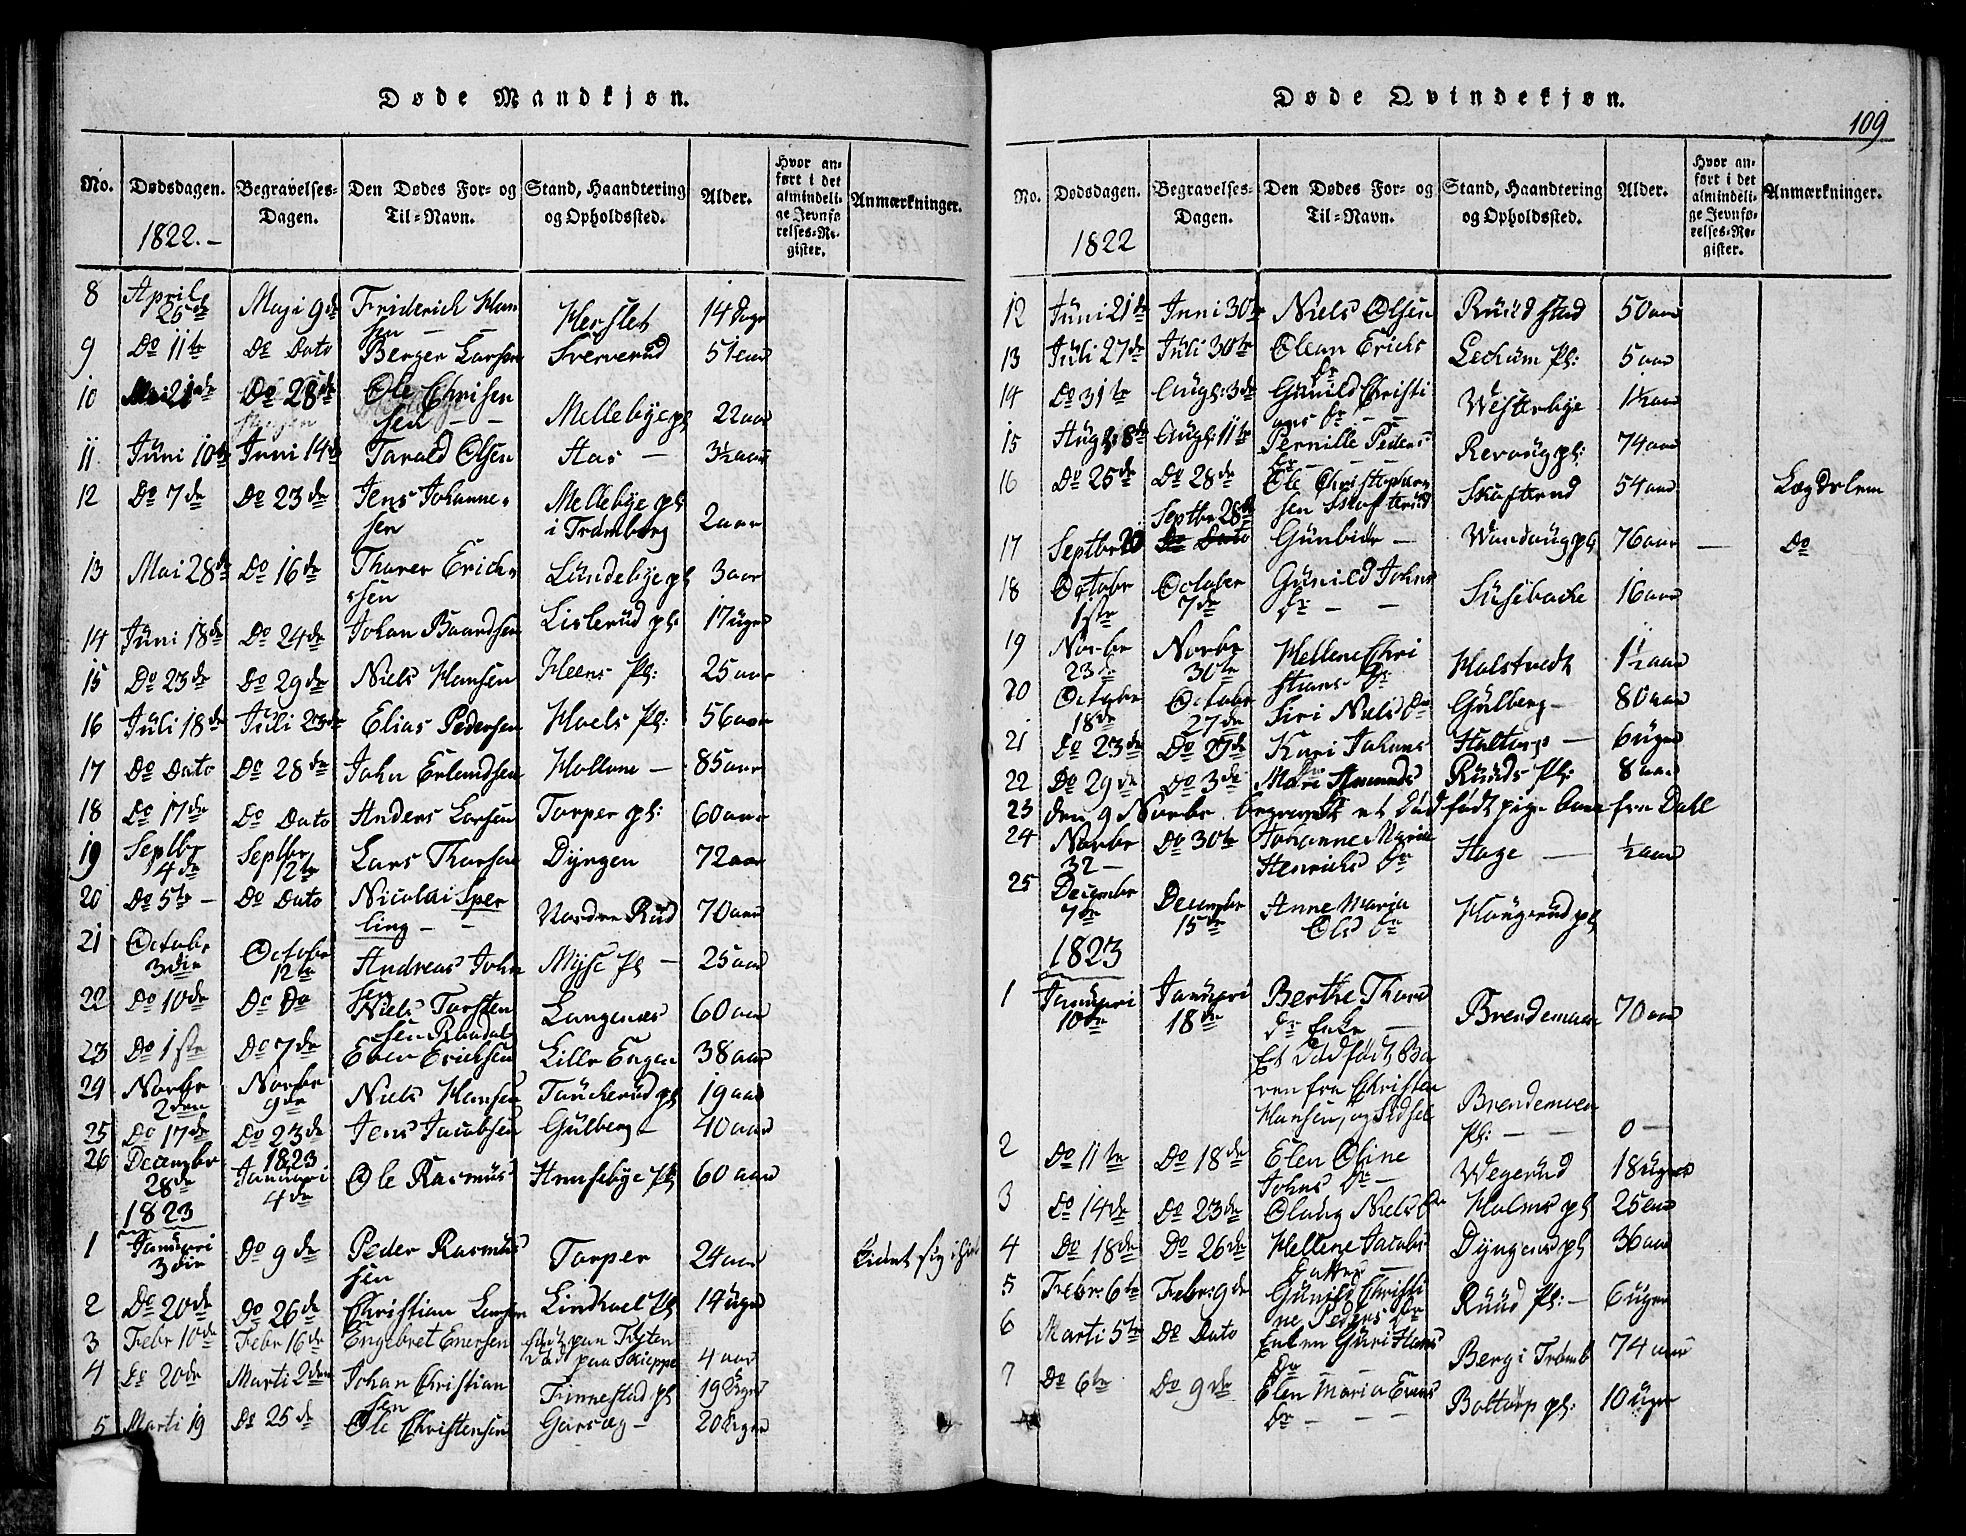 Døde Mandkjøn.
No. Dødsdagen. Begravelses-Dagen. Den Dødes For- og Til-Navn. Stand, Haandtering og Opholdssted. Alder. Hvor anført i det almindelige Jevnførelses-Register. Anmærkninger.
1822.-
8 April 26de Maji 9de Friderich Han
sen - - Herslet 14 Uger
9 Do 11te Do Dato Berger Larsen Sververud 51 aar
10 Mai 21de Do 28de Ole Chrisen
sen - - Mellebye pl 22 aar
11 Juni 10de Juni 14de Tarald Olsen Aas - 3½ aar
12 Do 7de Do 23de Jens Johanne-
sen Mellebye pl
i Tramborg 2 aar
13 Mai 28de Do 16de Thorer Erich-
sen Lundebye pl 3 aar
14 Juni 18de Do 24de Johan Baardsen Lislerud pl: 17 uger
15 Do 23de Do 29de Niels Hansen Heens Pl: 25 aar
16 Juli 18de Juli 23de Elias Pedersen Hoels Pl: 56 aar
17 Do Dato Do 28de John Erlandsen Hollene - 85 aar
18 Do 17de Do Dato Anders Larsen Torper pl: 60 aar
19 Septbr 4de Septbr 12te Lars Thorsen Dyngen 72 aar
20 Do 5te - Do Dato Nicolai Sper
ling - - Nordre Rud 70 aar
21 Octobr 3die October 12te Andreas John
sen Myse Pl - 25 aar
22 Do 10de Do Do Niels Torsten
sen Raadal Langenæs 60 aar
23 Do 1ste Do 7de Even Ericksen Lille Engen 38 aar
24 Novbr 2den Novbr 9de Niels Hansen Tuckerud pl 19 aar
25 Do 17de Do 23de Jens Jacobsen Gulberg - 40 aar
26 Decembr 28de 1823 Januari 4de Ole Rasmus Hemsebye Pl 60 aar
1823
1 Januari 3die Do 9de Peder Rasmus
sen Torper 24 aar
2 Do 20de Do 26de Christian Larsen Lindhoel Pl 14 uger
3 Febr 10de Febr 16de Engebret Enersen født paa Tryten
død paa Skieppe 4 aar
4 Do 20de Marti 2den Johan Christian
sen Finnestad pl 19 Uger
5 Marti 19 Do 25de Ole Christensen Garseg - 20 Uger
Døde Qvindekjøn.
109
No. Dødsdagen. Begravelses-Dagen. Den Dødes For- og Til-Navn. Stand, Haandtering og Opholdssted. Alder. Hvor anført i det almindelige Jevnførelses-Register. Anmærkninger.
1822
12 Juni 21de Juni 30te Niels Olsen Ruudstad 50 aar
13 Juli 27de Juli 30te Olean Erichs
Dr Lechum Pl: 5 aar
14 Do 31te Augs: 3de Gunild Christi
ans Dr - Westerbye 1½ aar
15 Augs: 8de Augs: 11te Pernille Peders
Dr - - Revaug pl: 74 aar
16 Do 25de Do 28de Ole Christophers
sen Skofterud Skofterud 54 aar Lægdslem
17 Septbr 20 Septbr 28de Gunbior - Wandaug pl 76 aar - Do
18 Octobr 1ste October 7de Gunild Johns
Dr - - Susebacke 16 aar
19 Novbr 23de Novbr 30te Hellene Chri
stians Dr Holstvedt 1½ aar
20 Octobr 18de Octobr 27de Siri Niels Dr Gulberg - 80 aar
21 Do 23de Do 27de Kari Johans
Dr Haltorp - 6 uger
22 Do 29de Do 3de Mari Amunds Ruuds Pl: 8 aar
23 den 9 Novbr. begravet et Død født pige barn fra Dahl
24 Novbr 32 - Do 30te Johanne Maria
Henrichs Dr Hage - ½ aar
25 Decembr 7de Decembr 15de Anne Maria
Ols Dr Haugerud pl
1823
1 Januari 10de Januari 18de Berthe Thord
Dr Enke - Brendemoen 70 aar
Et Dødfødt Ba
ren fra Christen
Hansen, og Sidsel Brendemoen
Pl: - - 0 -
2 Do 11te Do 18de Elen Oline
Johns Dr - Wegerud 18 uger
3 Do 14de Do 23de Olaug Niels Dr Holms pl 25 aar
4 Do 18de Do 26de Hellene Jacobs
Datter - Dyngens pl 36 aar
5 Febr: 6te Febr: 9de Gunild Christi
ne Peders Dr Ruud Pl: - 6 uger
6 Marti 5te Do Dato Enken Guri Hans
Dr - Berg i Tromb 74 aar
7 Do 6te Do 9de Elen Maria Evens
Dr - - - Boltorp pl: 10 uger